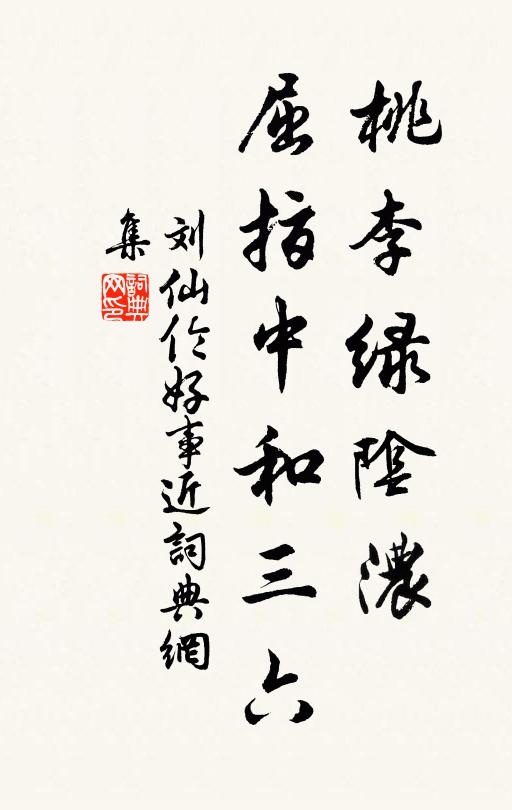 桃李绿陰濃
屈指中和三六
刘仙伦好事近詞典網
集
詞典
网印